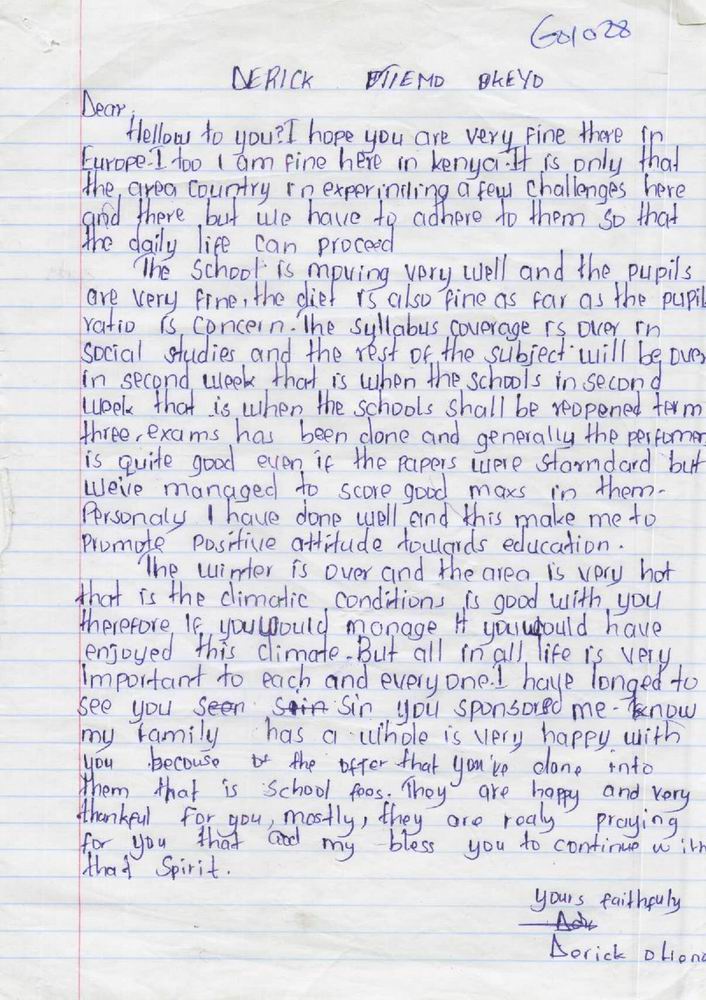 G01028
DERICK OTIENO OKEYO
Dear,
Hellow to you? I hope you are very fine there in
Europe. I too I am fine here in kenya. It is only that
the area country in experinding a few challenges here
and there but we have to adhere to them so that
the daily life can proceed
The School is moving very well and the pupils
are very fine, the diet is also fine as far as the pupil
ratio is concern. The syllabus coverage is over in
social studies and the rest of the subject will be over
in second week that is when the schools in second
week that is when the schools shall be reopened term
three, exams has been done and generally the performen
is quite good even if the papers were starndard but
we've managed to score good maxs in them.
Personaly I have done well and this make me to
promote positive attitude towards education.
The winter is over and the area is very hot
that is the climatic conditions is good with you
therefore if you would manage it you would have
enjoyed this climate. But all in all life is very
important to each and everyone. I have longed to
see you seen Sein Sin you sponsored me. know
my family has a whole is very happy with
you becouse of the offer that you've done into
them that is school fees. They are happy and very
thankful for you, mostly, they are realy praying
for you that God my bless you to continue with
that Spirit.
Yours faithfuly
Derick otieno